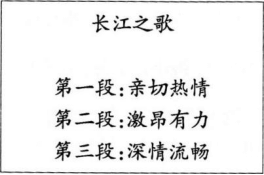 长江之歌
第一段:亲切热情
第二段:激昂有力
第三段:深情流畅